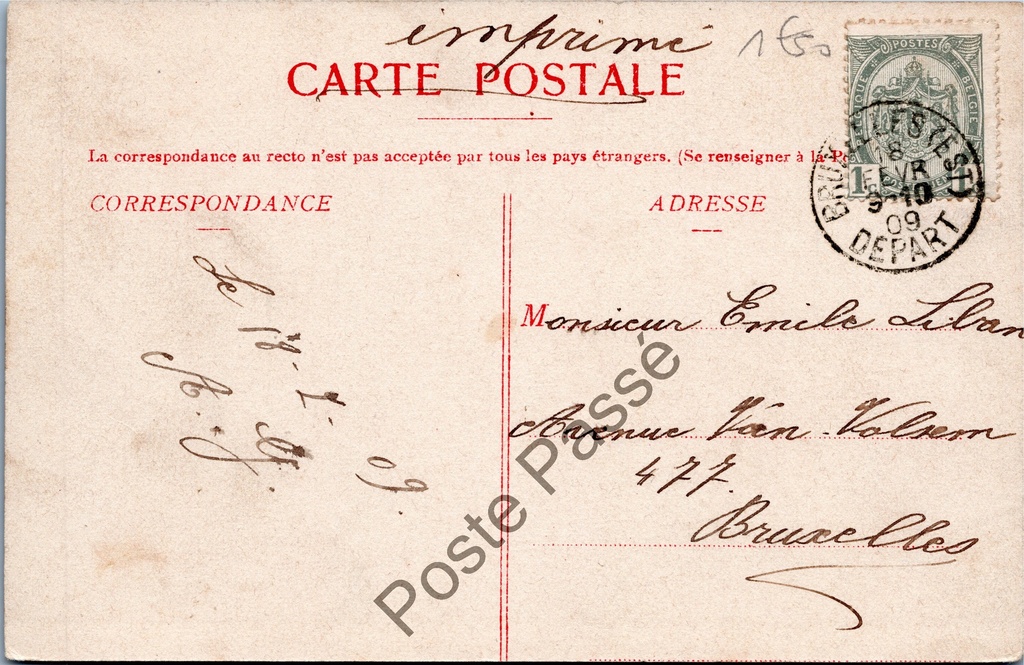 imprimé
1€50
CARTE POSTALE
POSTES
BELGIQUE BELGIE
La correspondance au recto n'est pas acceptée par tous les pays étrangers. (Se renseigner à la Po
1 1
BRUXELLES (EST)
18
FEVR
9-10
09
DEPART
CORRESPONDANCE
ADRESSE
Le 18-2. 09.
Monsieur Emile Liban
Avenue Van-Volsem
477.
Bruxelles
Poste Passé